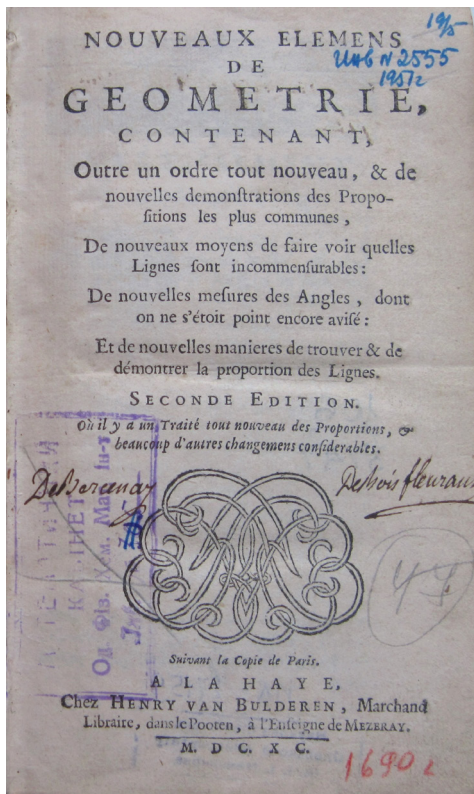 19/5
NOUVEAUX ELEMENS
Инв № 2555
DE
1951г
GEOMETRIE,
CONTENANT,
Outre un ordre tout nouveau, & de
nouvelles demonſtrations des Propo-
ſitions les plus communes,
De nouveaux moyens de faire voir quelles
Lignes ſont incommenſurables:
De nouvelles meſures des Angles, dont
on ne s'étoit point encore aviſé:
Et de nouvelles manieres de trouver & de
démontrer la proportion des Lignes.
SECONDE EDITION.
Où il y a un Traité tout nouveau des Proportions, &
beaucoup d'autres changemens conſiderables.
Desbois fleurant
КАБІНЕТ
Од. Фіз. Хем. Мат. Ін-т
Suivant la Copie de Paris.
A LA HAYE,
Chez HENRY VAN BULDEREN, Marchand
Libraire, dans le Pooten, à l'Enſeigne de MEZERAY.
M. DC. XC.
1690 г